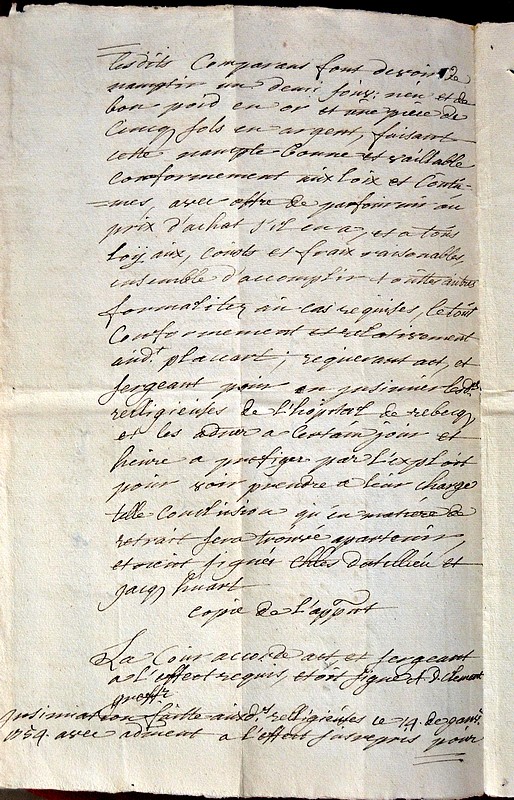 lesdits Comparans font devoir de
namptir un demi souv: neu et de
bon poid en or et une pièce de
Cincq sols en argent, faisant
cette nample bonne et vaillable
conformement aux loix et Coutu-
=mes, avec offre de parfournir au
prix d'achat s'il en a, et a tous
loijaux, cousts et fraix raisonables,
ensemble d'accomplir touttes autres
formalitez au cas requises, le tout
Conformement et relativement
aud.t placcart; requerant act, et
sergeant pour en insinuer lesd.es
relligieuses de l'hôpital de rebecq,
et les adner a certain jour et
heure a prefiger par l'exploit
pour voir prendre a leur charge
telle Conclusion qu'en matière de
retrait sera trouvé apartenir,
etoient signés Chles et
Jacq
copie de l'appot
La Cour accorde act, et sergeant
a l'effect requis, étoit signé d. Clement
greffr
Insinuation faitte auxd.es relligieuses ce 14 de janv.
1754 avec adment a l'effect susrepris pour